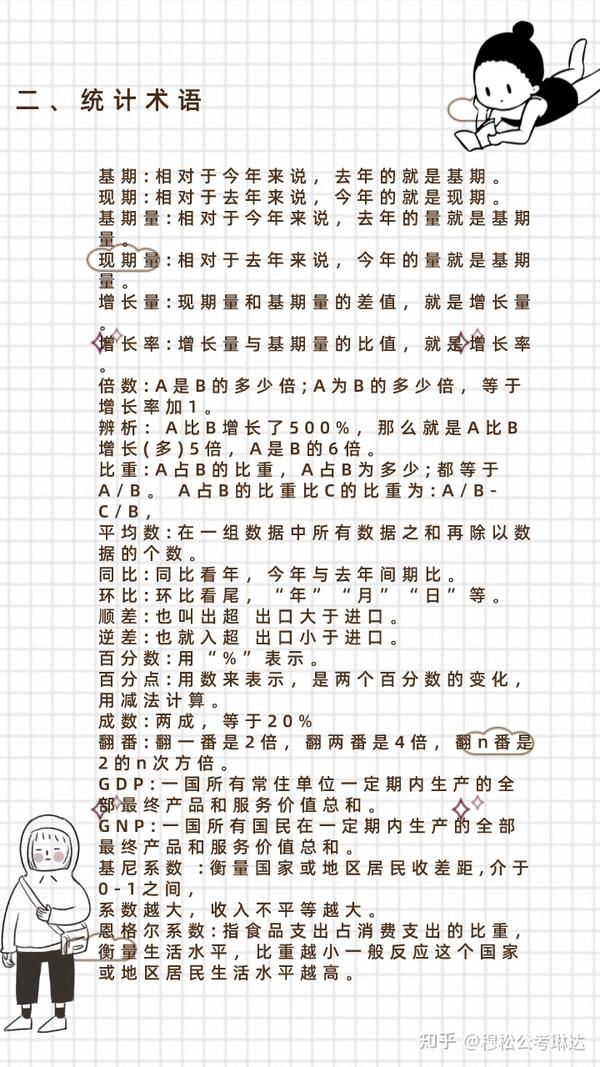 二、统计术语
基期:相对于今年来说，去年的就是基期。
现期:相对于去年来说，今年的就是现期。
基期量:相对于今年来说，去年的量就是基期
量。
现期量:相对于去年来说，今年的量就是基期
量。
增长量:现期量和基期量的差值，就是增长量
。
增长率:增长量与基期量的比值，就是增长率
。
倍数:A是B的多少倍;A为B的多少倍，等于
增长率加1。
辨析: A比B增长了500%，那么就是A比B
增长(多)5倍，A是B的6倍。
比重:A占B的比重，A占B为多少;都等于
A/B。 A占B的比重比C的比重为:A/B-
C/B，
平均数:在一组数据中所有数据之和再除以数
据的个数。
同比:同比看年，今年与去年间期比。
环比:环比看尾，“年”“月”“日”等。
顺差:也叫出超 出口大于进口。
逆差:也就入超 出口小于进口。
百分数:用“%”表示。
百分点:用数来表示，是两个百分数的变化，
用减法计算。
成数:两成，等于20%
翻番:翻一番是2倍，翻两番是4倍，翻n番是
2的n次方倍。
GDP:一国所有常住单位一定期内生产的全
部最终产品和服务价值总和。
GNP:一国所有国民在一定期内生产的全部
最终产品和服务价值总和。
基尼系数 :衡量国家或地区居民收差距,介于
0-1之间，
系数越大，收入不平等越大。
恩格尔系数:指食品支出占消费支出的比重，
衡量生活水平，比重越小一般反应这个国家
或地区居民生活水平越高。
知乎 @穆松公考琳达